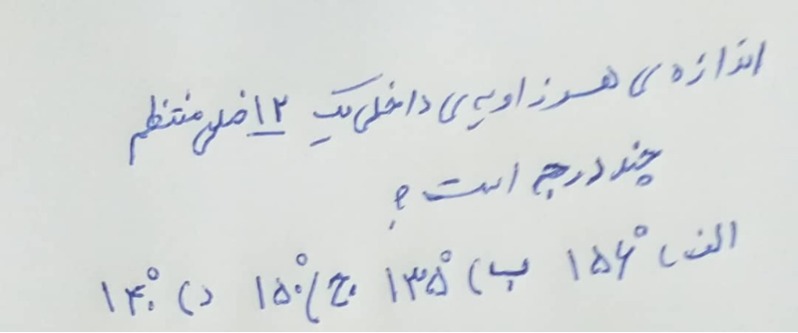 اندازه ی هر زاویه ی داخلی یک ۱۲ ضلعی منتظم
چند درجه است ؟
الف) ۱۵۶° ب) ۱۳۵° ج) ۱۵۰° د) ۱۴۰°